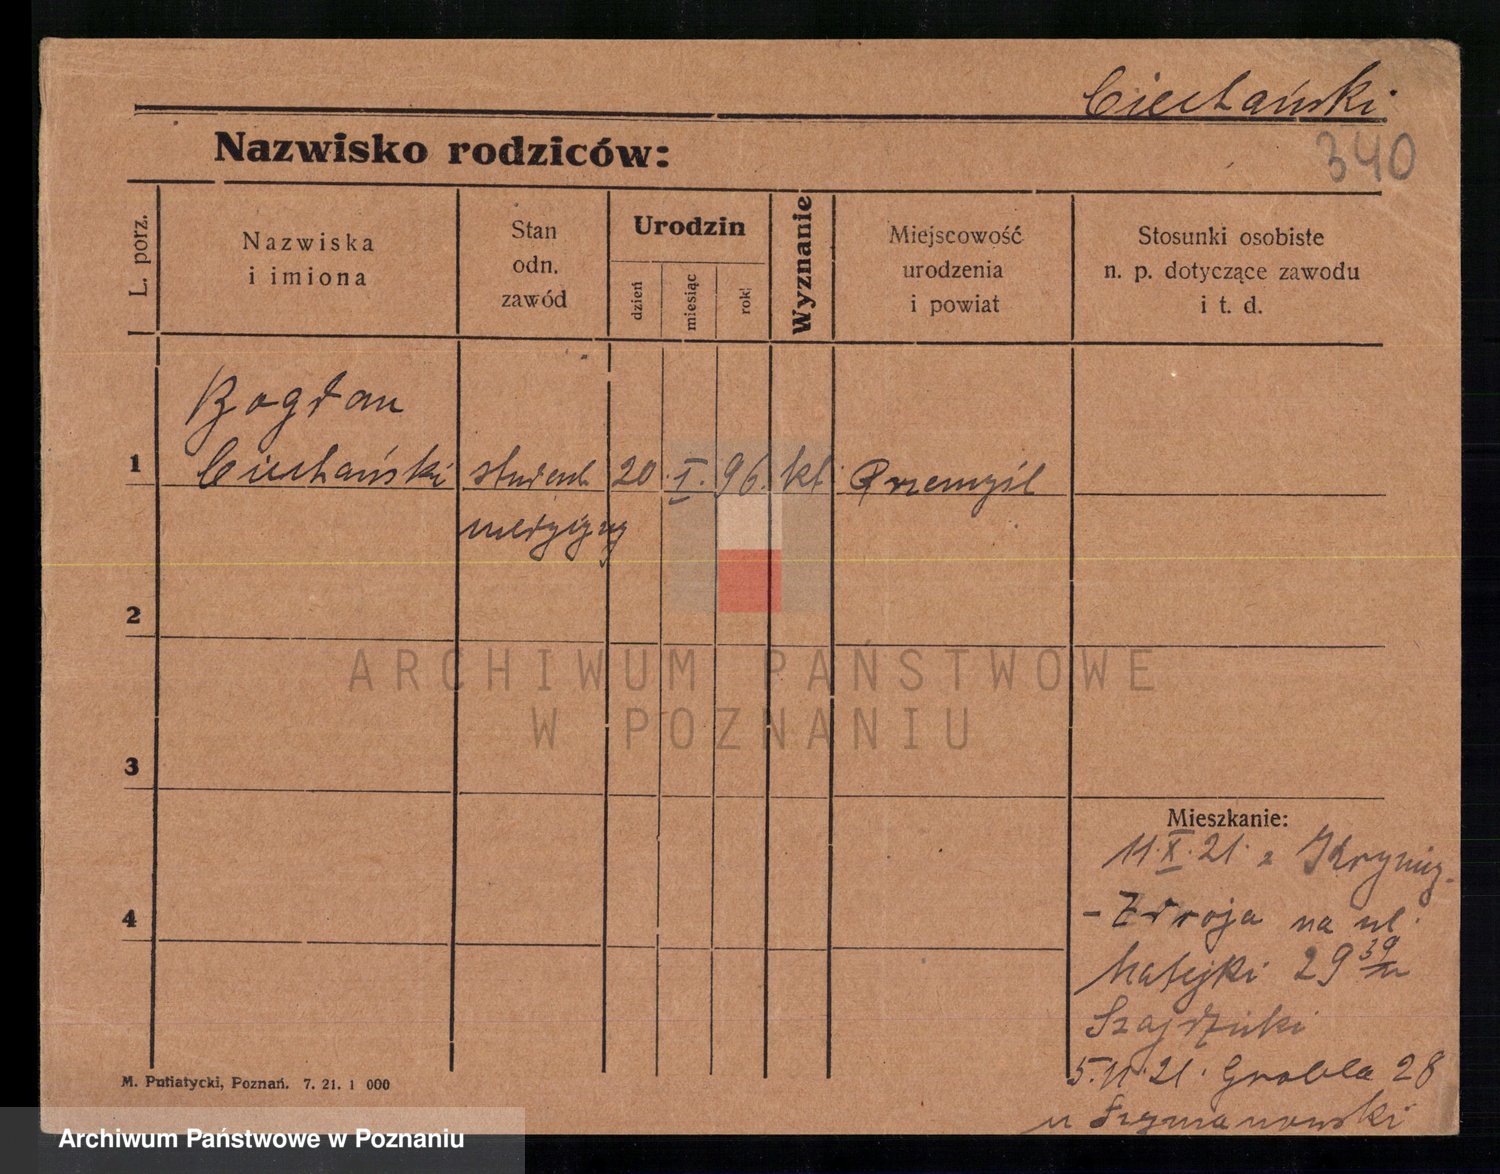 Ciechański
340
Nazwisko rodziców:
L. porz.
Nazwiska
i imiona
Stan
odn.
zawód
Urodzin
dzień
miesiąc
rok
Wyznanie
Miejscowość
urodzenia
i powiat
Stosunki osobiste
n. p. dotyczące zawodu
i t. d.
Bogdan
1 Ciechański student 20. I. 96. kt. Przemyśl
medycyny
2
3
4
Mieszkanie:
11.X.21. z Krynicy
- Zdroja na ul.
Matejki 29
5.11.21. Grobla 28
u Szymanowski
M. Putiatycki, Poznań. 7. 21. 1 000
ARCHIWUM PAŃSTWOWE
W POZNANIU
Archiwum Państwowe w Poznaniu